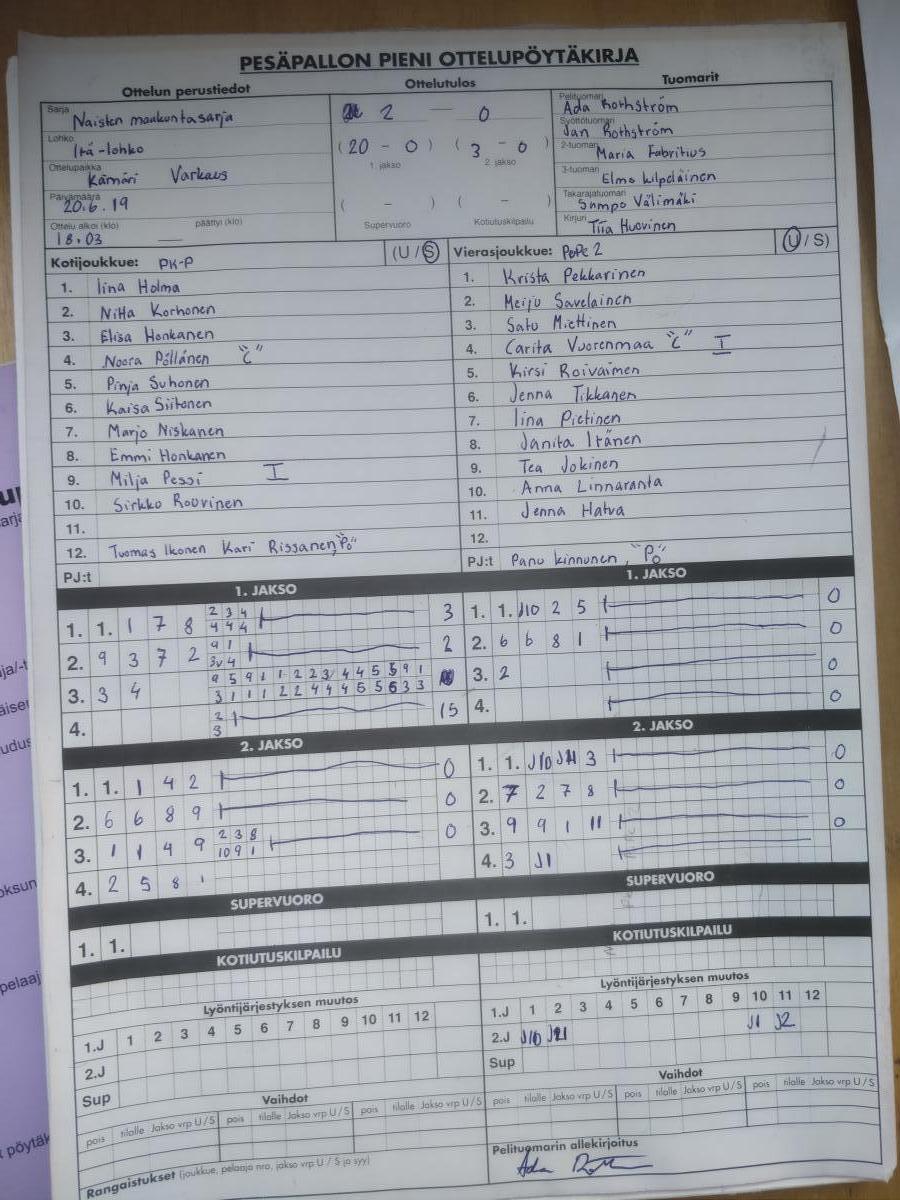 PESÄPALLON PIENI OTTELUPÖYTÄKIRJA
Ottelun perustiedot
Ottelutulos
Tuomarit
Sarja Naisten maakuntasarja
Lohko Itä-lohko
Ottelupaikka Kämäri Varkaus
Päivämäärä 20.6.19
Ottelu alkoi (klo) 18.03 päättyi (klo) —
2 — 0
(20 - 0) (3 - 0)
1. jakso 2. jakso
( - ) ( - )
Supervuoro Kotiutuskilpailu
Pelituomari Ada Rothström
Syöttötuomari Jan Rothström
2-tuomari Maria Fabritius
3-tuomari Elmo Kilpeläinen
Takarajatuomari Sampo Välimäki
Kirjuri Tiia Huovinen
Kotijoukkue: PK-P (U / S)
1. Iina Holma
2. Niita Korhonen
3. Elisa Honkanen
4. Noora Pöllänen "C"
5. Pinja Suhonen
6. Kaisa Siitonen
7. Marjo Niskanen
8. Emmi Honkanen
9. Milja Pessi I
10. Sirkko Roovinen
11.
12. Tuomas Ikonen Kari Rissanen, "Po"
PJ:t
Vierasjoukkue: PoPe 2 (U / S)
1. Krista Pekkarinen
2. Meiju Savelainen
3. Satu Miettinen
4. Carita Vuorenmaa "C" I
5. Kirsi Roivainen
6. Jenna Tikkanen
7. Iina Pietinen
8. Janita Itänen
9. Tea Jokinen
10. Anna Linnaranta
11. Jenna Hatva
12.
PJ:t Panu Kinnunen, "Po"
1. JAKSO
1. 1. 1 7 8 2 3 4 3
4 4 4
2. 9 3 7 2 9 1 2
3v 4
3. 3 4 9 5 9 1 1 2 2 3 4 4 5 5 9 1
3 1 1 1 2 2 4 4 4 5 5 6 3 3
4. 2 15
3
1. JAKSO
1. 1. J10 2 5 0
2. 6 6 8 1 0
3. 2 0
4. 0
2. JAKSO
1. 1. 1 4 2 0
2. 6 6 8 9 0
3. 1 1 4 9 2 3 8 0
10 9 1
4. 2 5 8 1
2. JAKSO
1. 1. J10 J11 3 0
2. 7 2 7 8 0
3. 9 9 1 11 0
4. 3 J1
SUPERVUORO
1. 1.
SUPERVUORO
1. 1.
KOTIUTUSKILPAILU
KOTIUTUSKILPAILU
Lyöntijärjestyksen muutos
1.J 1 2 3 4 5 6 7 8 9 10 11 12
2.J
Sup
Lyöntijärjestyksen muutos
1.J 1 2 3 4 5 6 7 8 9 10 11 12
2.J J10 J11 J1 J2
Sup
Vaihdot
pois tilalle Jakso vrp U / S pois tilalle Jakso vrp U / S pois tilalle Jakso vrp U / S
Vaihdot
pois tilalle Jakso vrp U / S pois tilalle Jakso vrp U / S pois tilalle Jakso vrp U / S
Rangaistukset (joukkue, pelaaja nro, jakso vrp U / S ja syy)
Pelituomarin allekirjoitus
Ada